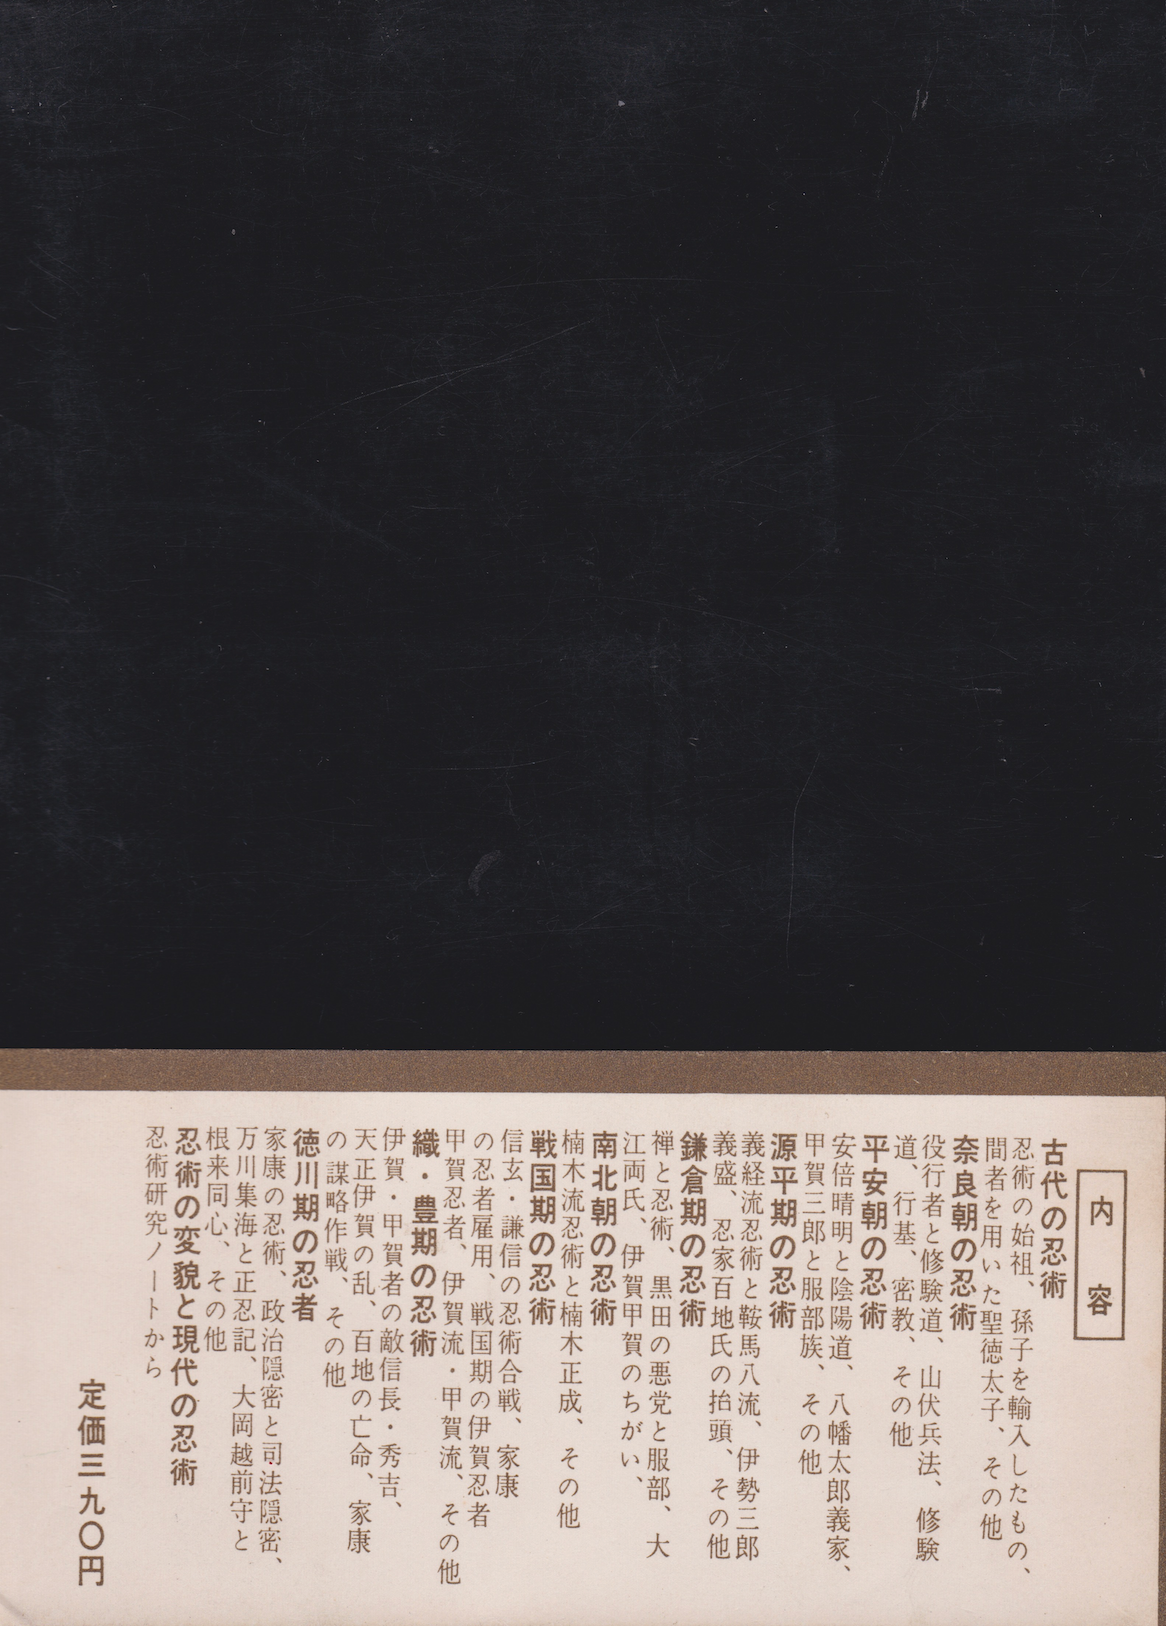 内容
古代の忍術
忍術の始祖、孫子を輸入したもの、
間者を用いた聖徳太子、その他
奈良朝の忍術
役行者と修験道、山伏兵法、修験
道、行基、密教、その他
平安朝の忍術
安倍晴明と陰陽道、八幡太郎義家、
甲賀三郎と服部族、その他
源平期の忍術
義経流忍術と鞍馬八流、伊勢三郎
義盛、忍家百地氏の抬頭、その他
鎌倉期の忍術
禅と忍術、黒田の悪党と服部、大
江両氏、伊賀甲賀のちがい、
南北朝の忍術
楠木流忍術と楠木正成、その他
戦国期の忍術
信玄・謙信の忍術合戦、家康
の忍者雇用、戦国期の伊賀忍者
甲賀忍者、伊賀流・甲賀流、その他
織・豊期の忍術
伊賀・甲賀者の敵信長・秀吉、
天正伊賀の乱、百地の亡命、家康
の謀略作戦、その他
徳川期の忍者
家康の忍術、政治隠密と司法隠密、
万川集海と正忍記、大岡越前守と
根来同心、その他
忍術の変貌と現代の忍術
忍術研究ノートから
定価三九〇円